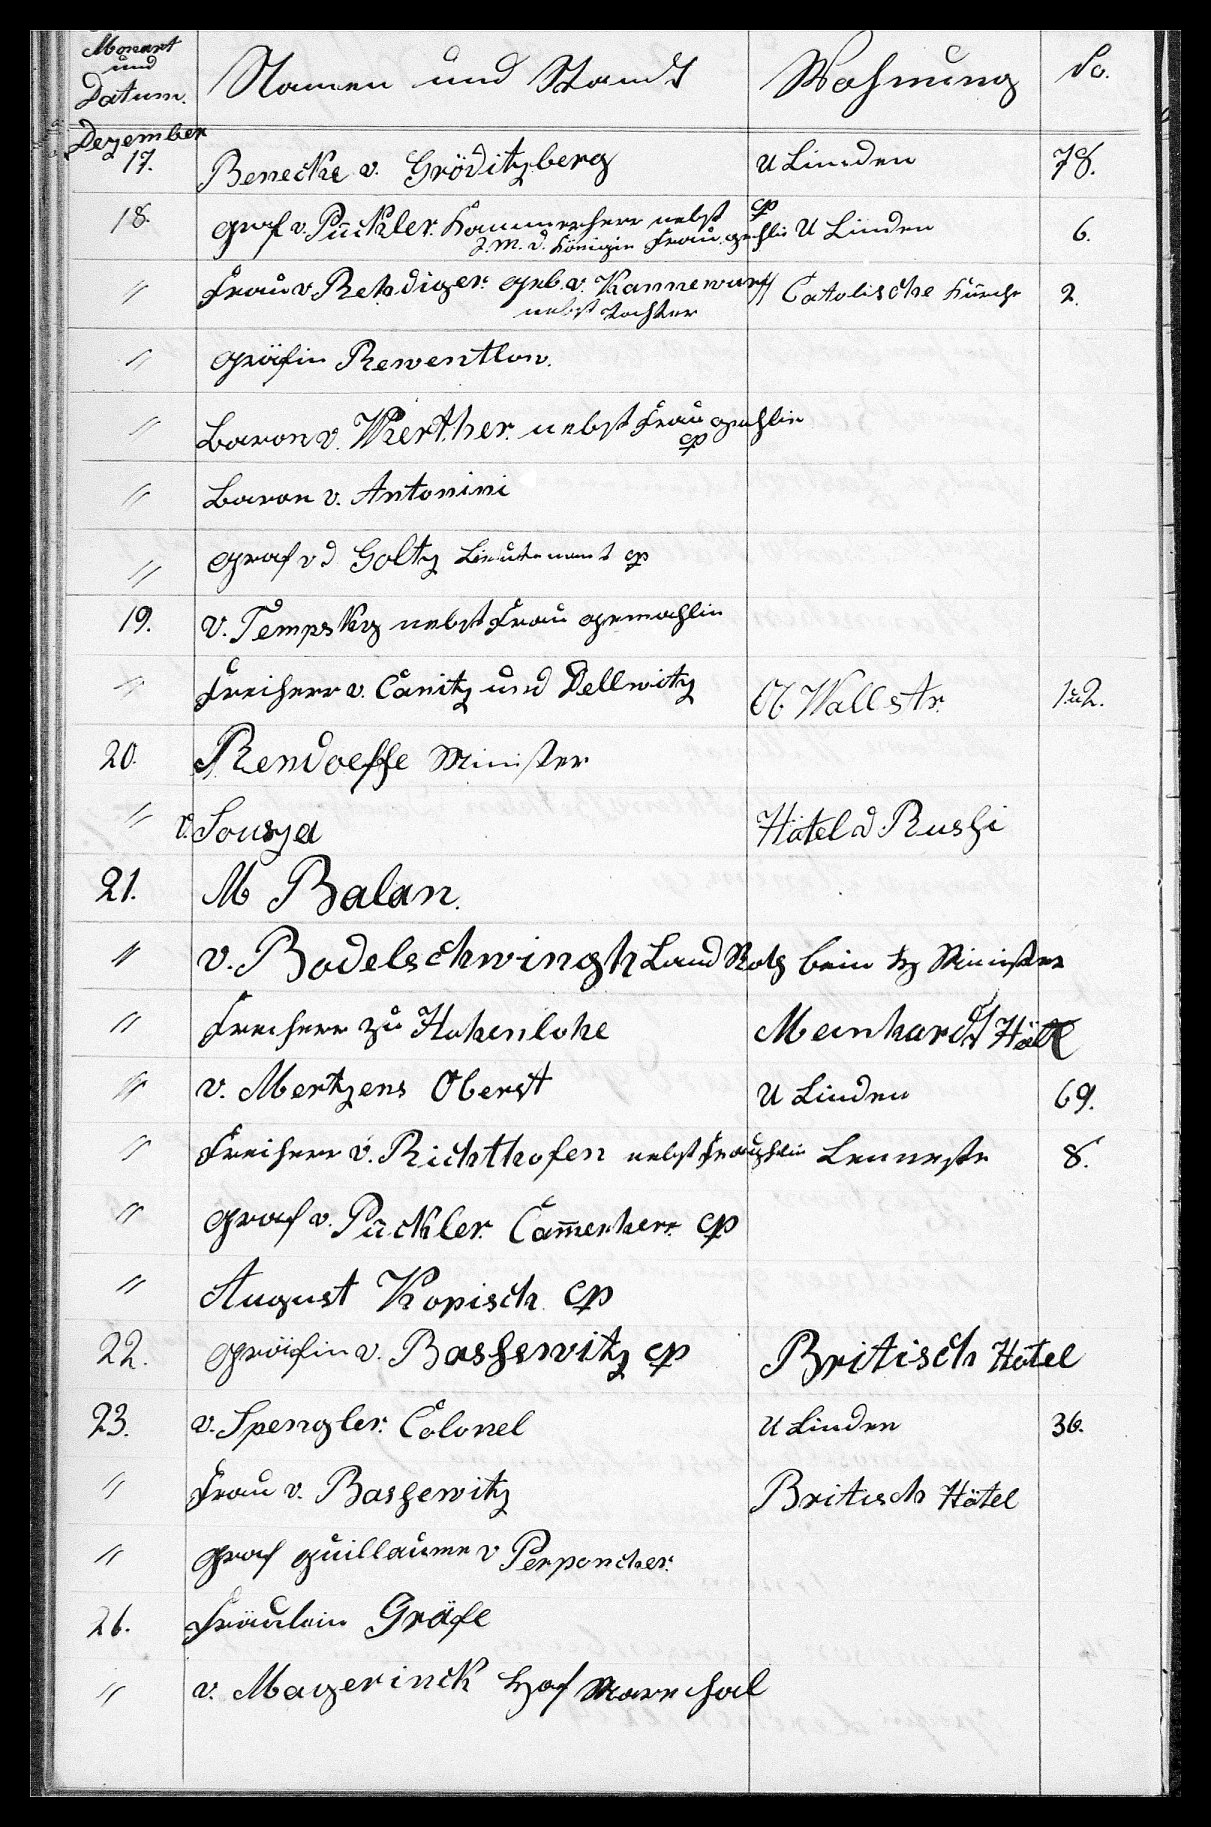 Monart
und
Datum.
Namen und Standt
Wohnung
No.
Dezember
17. Benecke v. Gröditzberg U Linden 78.
18. Graf v. Pückler. Kammerherr nebst cp
J. M. d. Königin Frau gehlin U Linden 6.
" Frau v. Rehdiger. geb. v. Kannewurff Catolische Kirche 2.
nebst Tochter
" Gräfin Rewentlow.
" Baron v. Werther. nebst Frau gmhlin
cp
" Baron v. Antonini
" Graf v d Goltz Lieutenant cp
19. v. Tempsky nebst Frau gemahlin
" Freiherr v. Canitz und Dellwitz Ob Wallstr. 1 u 2.
20. Rendoeffe Minister
" v. Sousza Hôtel d Rushi
21. M Balan.
" v. Bodelschwingh Land Rath beim Minister
" Freiherr zu Hohenlohe Meinhardt Hôtel
" v. Mertzens Oberst U Linden 69.
" Freiherr v. Richthofen nebst Frau Lennestr 8.
" Graf v. Pückler. Cam̅erherr. cp
" August Kopisch cp
22. Gräfin v. Bassewitz cp Britisch Hôtel
23. v. Spengler. Colonel U Linden 36.
" Frau v. Bassewitz Britisch Hôtel
" Graf Guillaume v Perponcher.
26. Fräulein Gräfe
" v. Mayerinck Hof Marechal